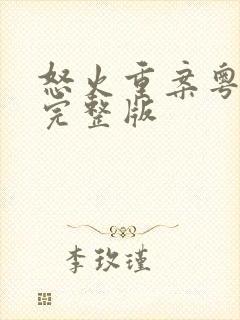 怒火重案粤
完整版
李玫瑾